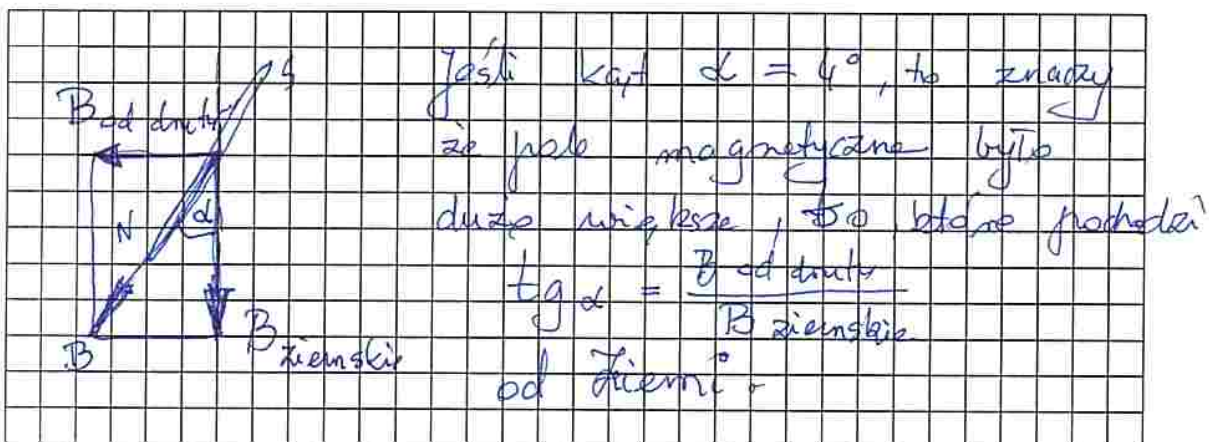 S
B od drutu
N
α
B
B ziemskie
Jeśli kąt α = 4°, to znaczy
że pole magnetyczne było
dużo większe, to które pochodzi
tg α = B od drutu / B ziemskie
od Ziemi.